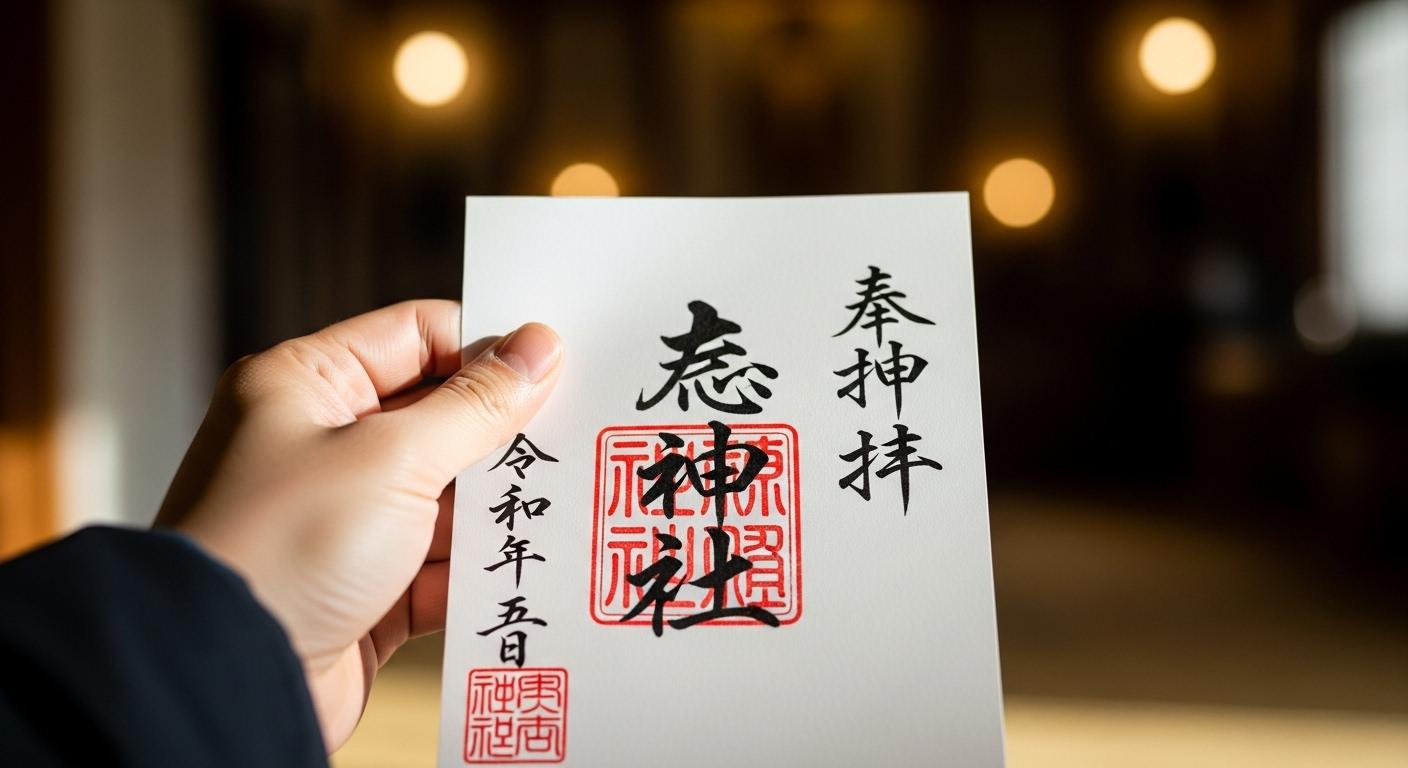 奉抻拝
神社
令和年五日